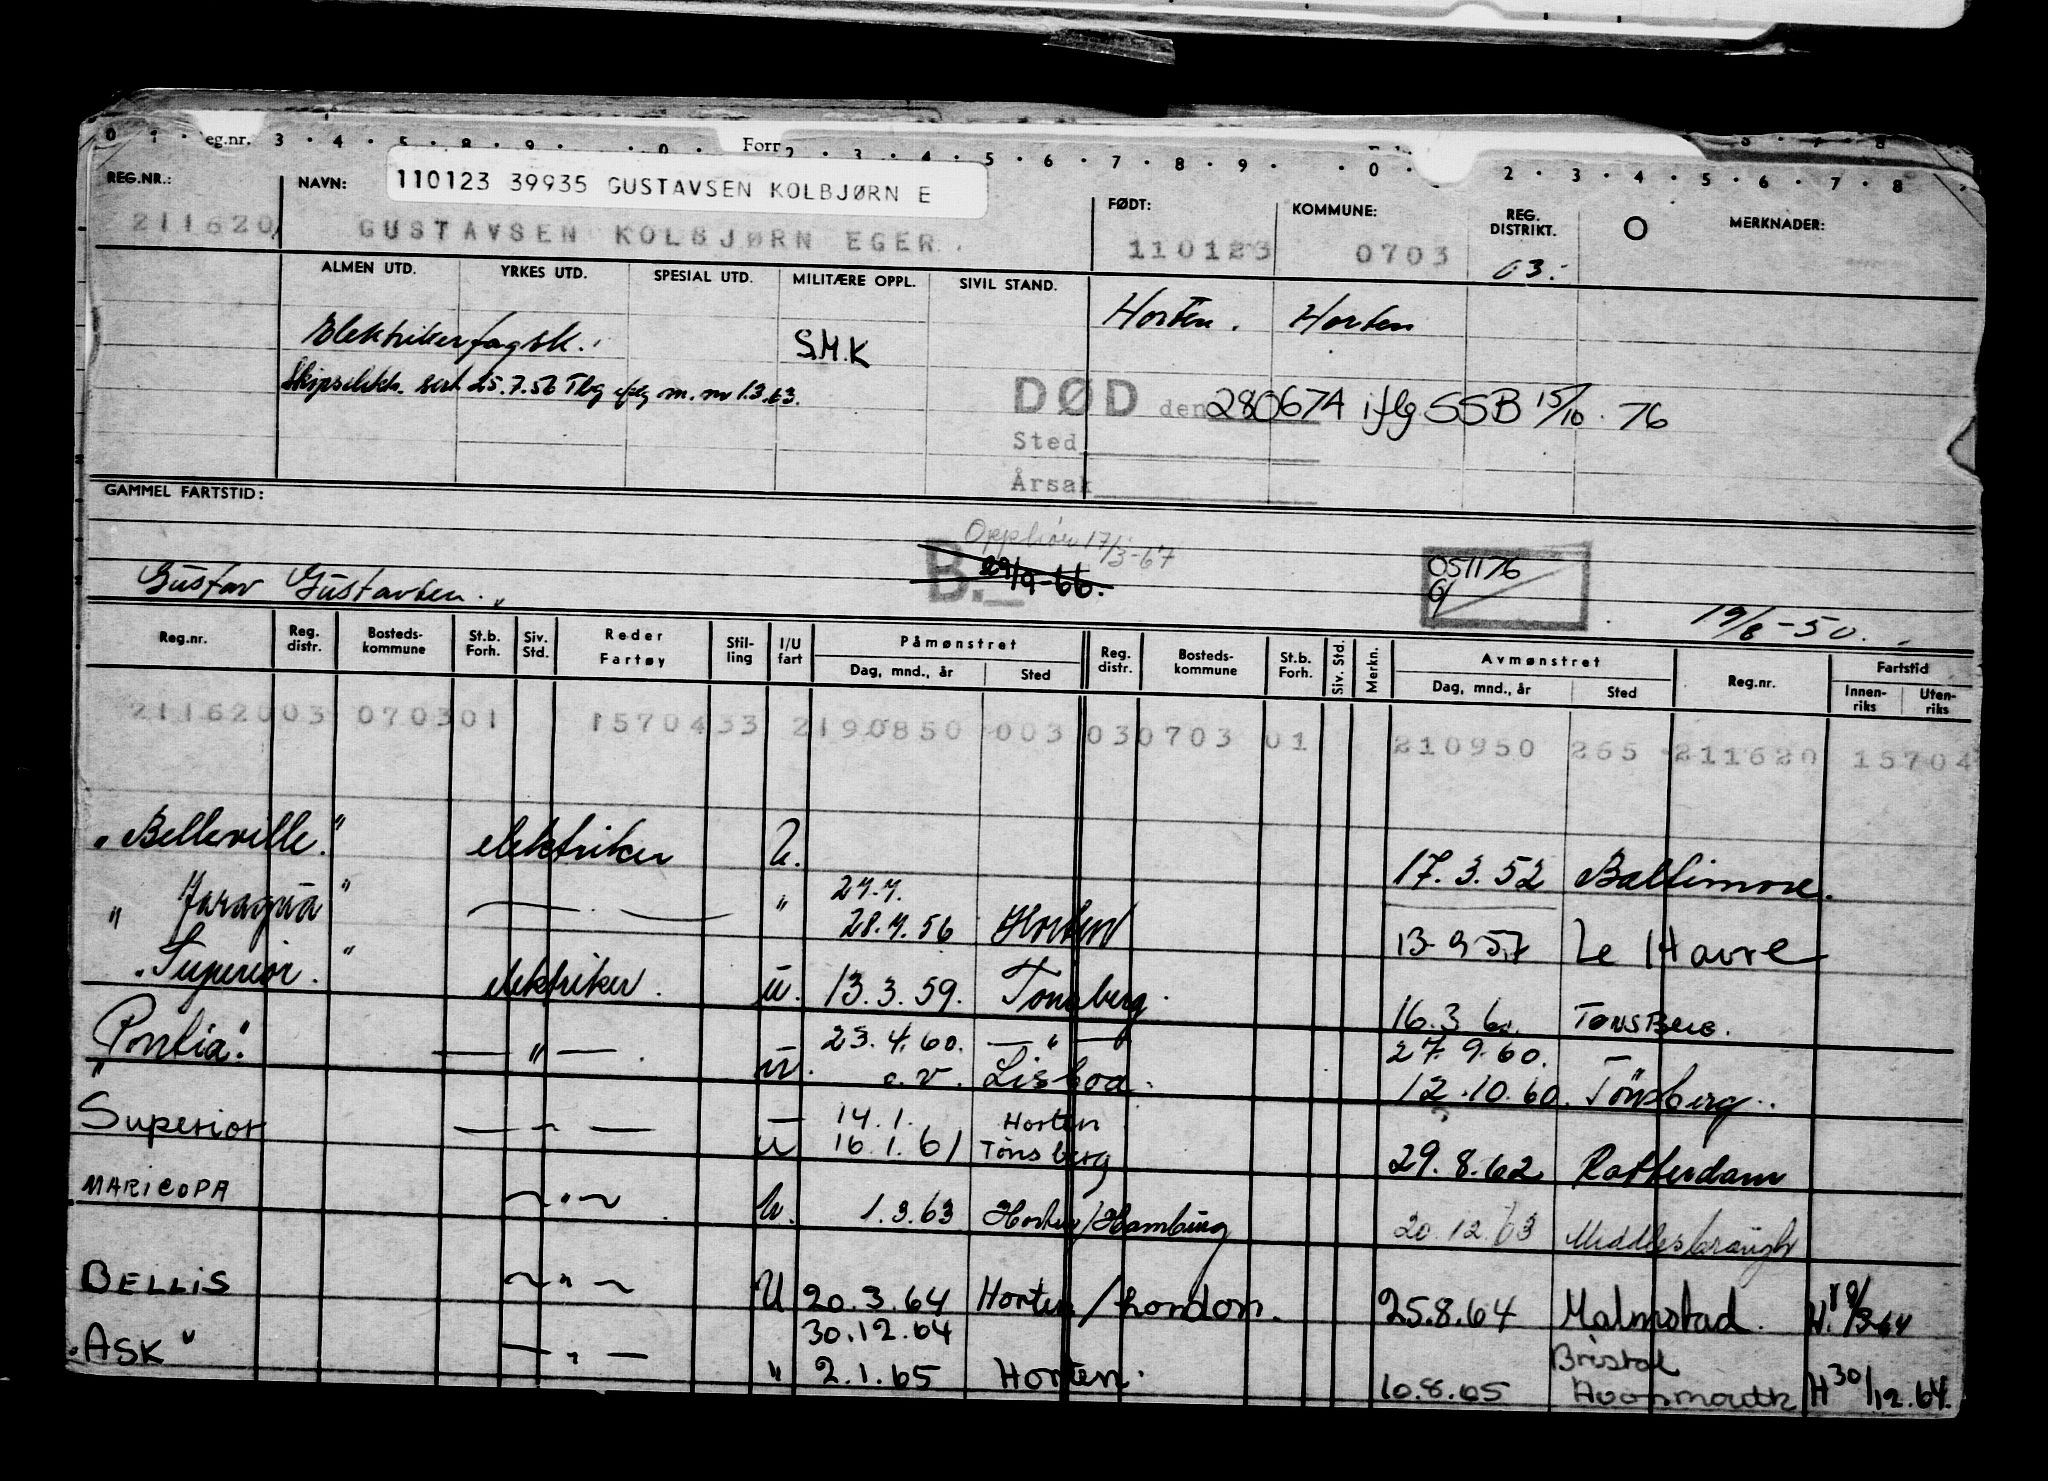 0 · 1 · eg.nr. 3 · 4 · 5 · 8 · 9 · 0 · Forr 2 · 3 · 4 · 5 · 6 · 7 · 8 · 9 · · 0 · 2 · 3 · 4 · 5 · 6 · 7 · 8
REG.NR.: NAVN: 110123 39935 GUSTAVSEN KOLBJØRN E FØDT: KOMMUNE: REG. DISTRIKT. O MERKNADER:
211620 GUSTAVSEN KOLBJØRN EGER. 110123 0703 03.
ALMEN UTD. YRKES UTD. SPESIAL UTD. MILITÆRE OPPL. SIVIL STAND.
Elektrikerfagsk. S.M.K Horten. Horten
Skipselektr. sert 25.7.56 Tbg iflg m.m 1.3.63.
DØD den 280674 iflg SSB 15/10 . 76
Sted
Årsak
GAMMEL FARTSTID:
Opphør 17/3-67
B. 29/9-66. 051176
G/
Gustav Gustavsen. 19/8-50.
Reg.nr. Reg. distr. Bosteds- kommune St.b. Forh. Siv. Std. Reder Fartøy Stil- ling I/U fart Påmønstret Reg. distr. Bosteds- kommune St.b. Forh. Siv. Std. Merkn. Avmønstret Reg.nr. Fartstid
Dag, mnd., år Sted Dag, mnd., år Sted Innen- riks Uten- riks
211620 03 0703 01 1570433 2190850 003 03 0703 01 210950 265 211620 15704
"Belleville." elektriker U. 17.3.52 Baltimore.
27.7.
" Jaraguà " — — " 28.7.56 Horten 13-9 57 Le Havre
"Superior." elektriker. u. 13.3.59. Tønsberg. 16.3 60. TønsBerg.
"Pontia". — " — . 23.4.60. — " — 27.9.60.
u. c.v. Lisboa. 12.10.60. Tönsberg.
14.1. Horten
Superior — " — u 16.1.61 Tönsberg 29.8.62 Rotterdam
MARICOPA ~ " ~ U. 1.3.63 Horten/Hamburg 20.12.63 Middlesbrough
BELLIS ~ " ~ U 20.3.64 Horten / London. 25.8.64 Malmstad. H. 18/3-64
30.12.64 Bristol
"ASK" — " — " 2.1.65 Horten. 10.8.65 Avonmouth H 30/12.64.